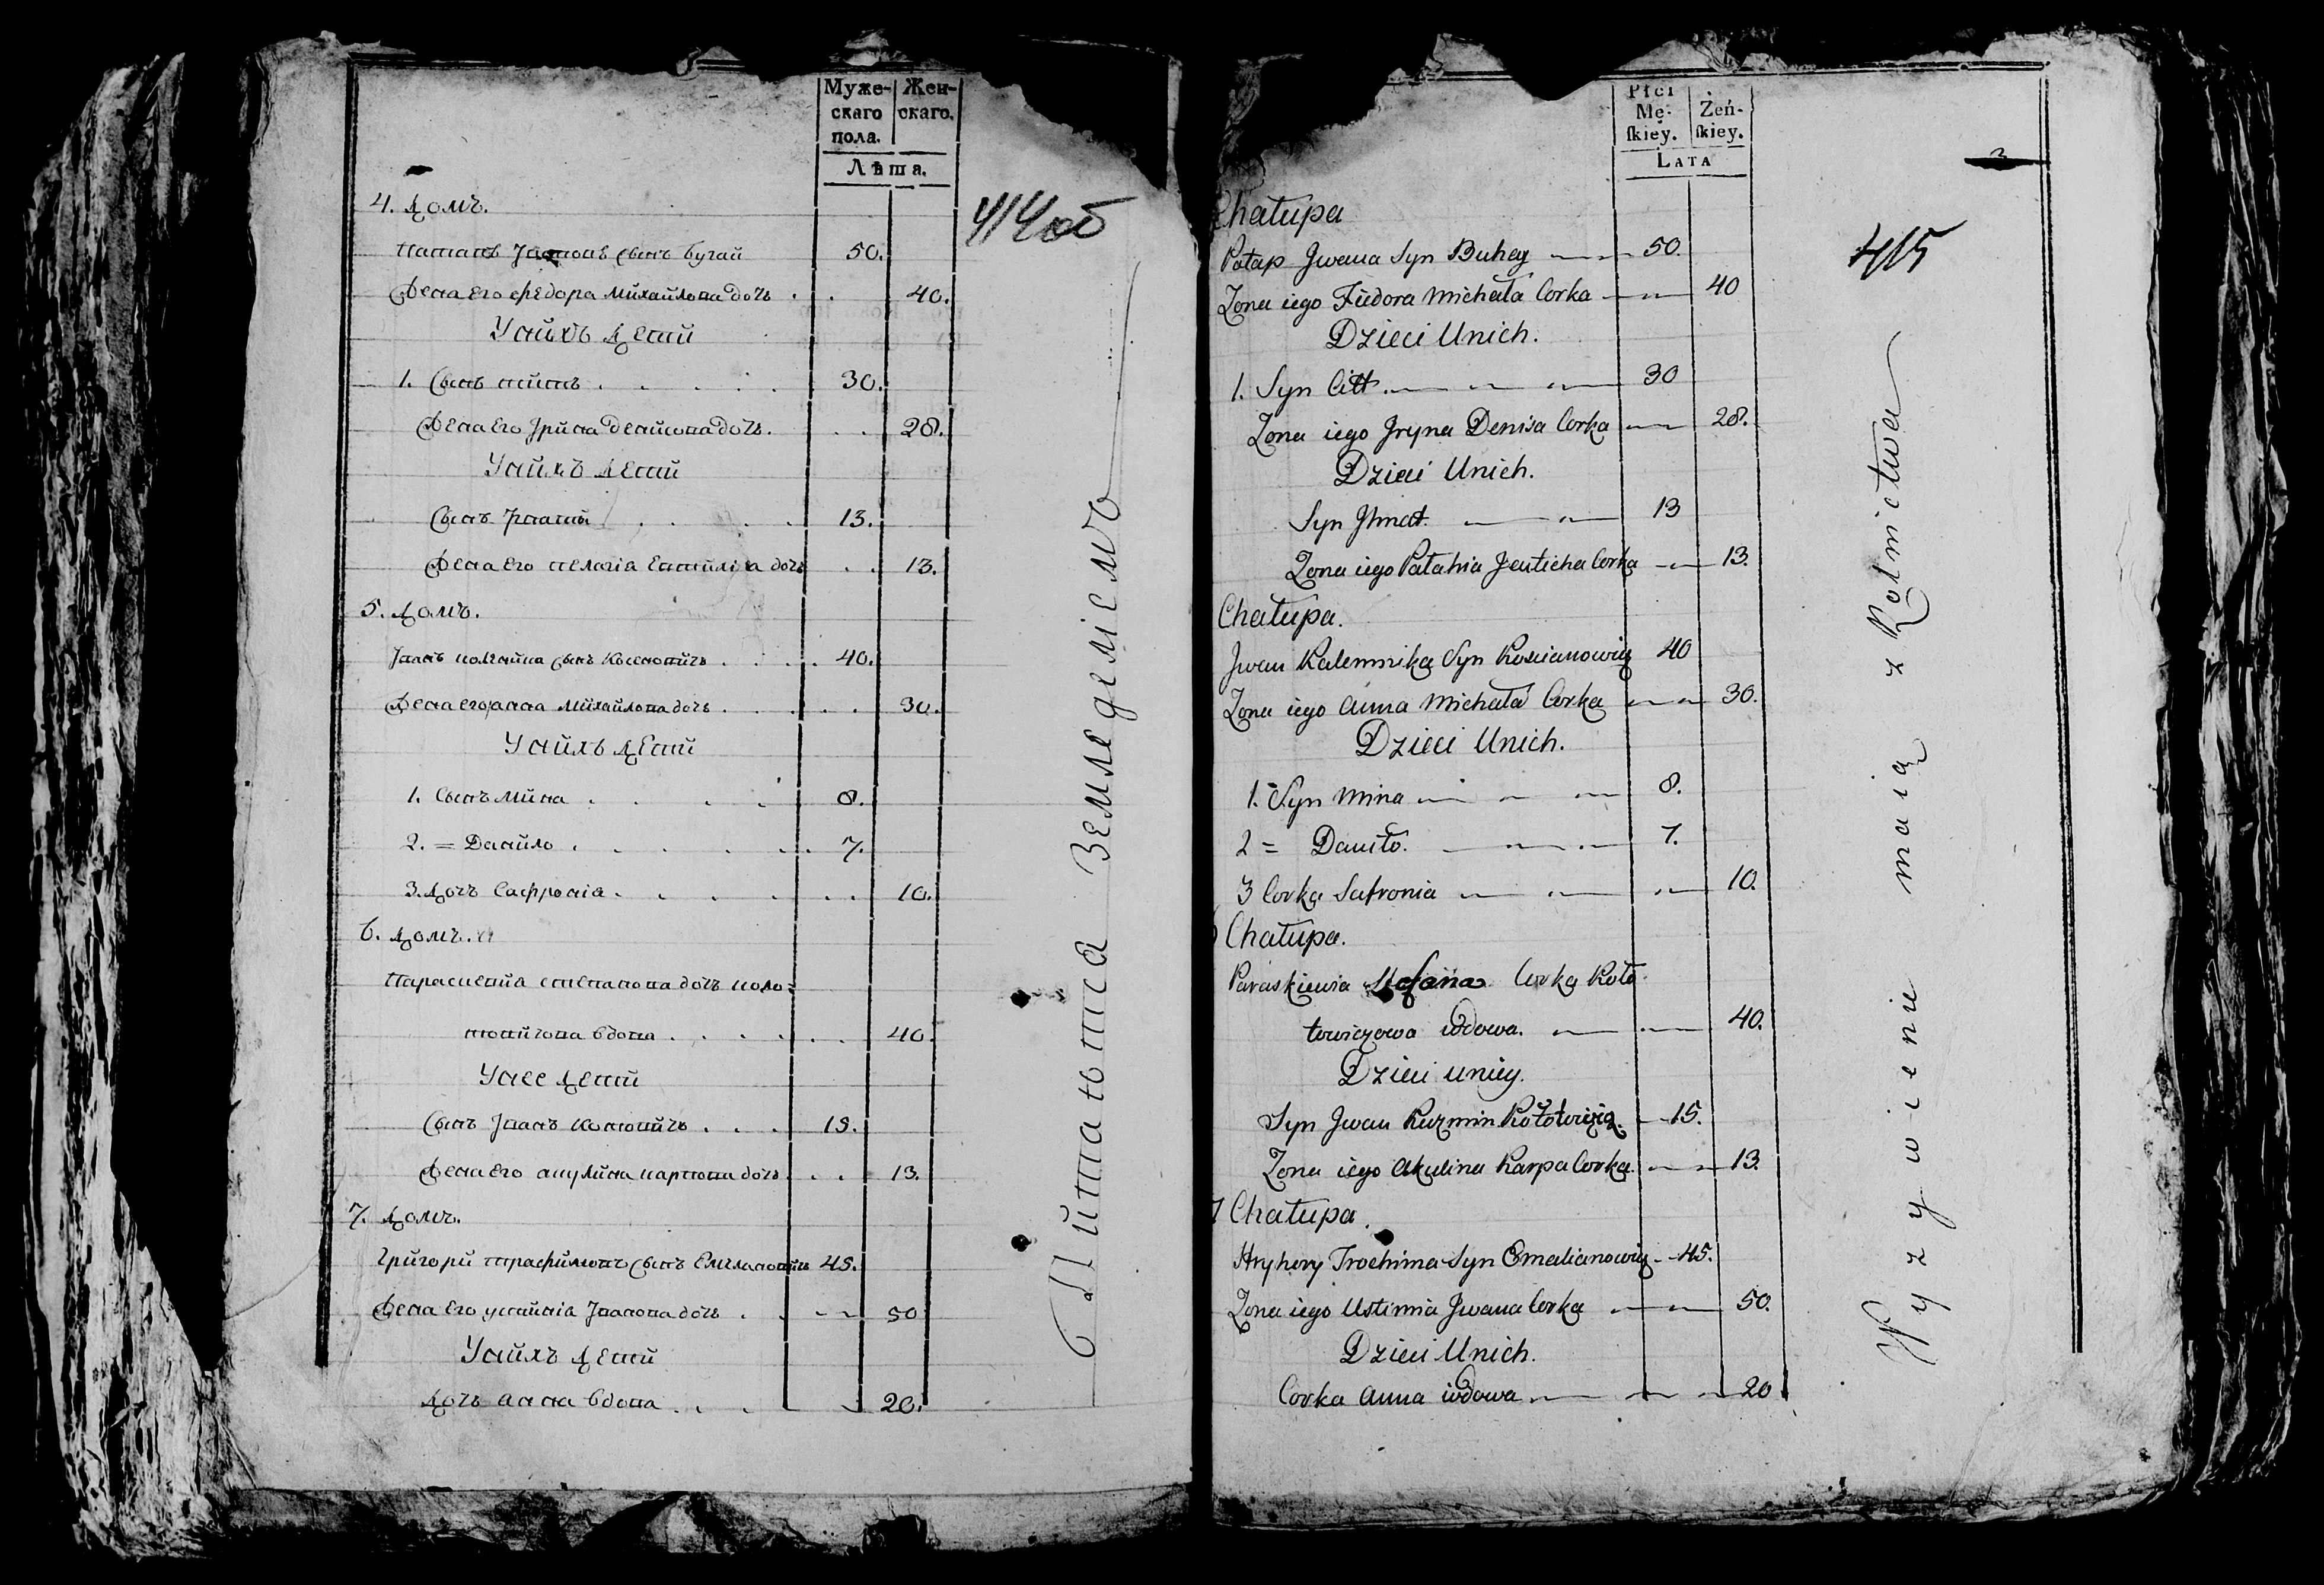 Муже-
скаго
пола.
Жен-
скаго.
Лѣта.
414 об
4. Домъ.
Потапъ Ивановъ сынъ Бугай 50.
Жена его Федора Михайлова дочь 40.
У нихъ дети
1. Сынъ титъ 30.
Жена его Ирина Денисова дочь. 28.
У нихъ дети
Сынъ Игнатъ 13.
Жена его Пелагіа дочь 13.
5. Домъ.
Иванъ сынъ 40.
Жена его анна Михайлова дочь 30.
У нихъ дети
1. Сынъ Мина 8.
2. = Данило 7.
3. Дочъ Сафроніа 10.
6. Домъ.
Параскевиа степанова дочъ Коло=
товичова вдова 40.
У нее дети
Сынъ Иванъ 15.
Жена его акулина карпова дочь 13.
7. Домъ.
Григори трафимовъ сынъ Емельановичъ 45.
Жена его устиніа Иванова дочь 50
У нихъ дети
Дочъ анна вдова 20.
Питаютса Земледеліемъ
Płci
Mę-
ſkiey.
Żeń-
ſkiey.
LATA
2
415
Chałupa
Potap Jwana Syn Buhay 50.
Zona iego Fiedora Michała Corka 40
Dzieci Unich.
1. Syn Citt 30
Zona iego Jryna Denisa Corka 28.
Dzieci Unich.
Syn Jhnat. 13
Zona iego Pałahia Corka 13.
Chałupa.
Jwan Kalennika Syn 40
Zona iego Anna Michała Corka 30.
Dzieci Unich.
1. Syn Mina 8.
2 = Daniło. 7.
3 Corka Safronia 10.
6 Chałupa.
Paraskiewia Stefana Corka Koło
towiczowa wdowa. 40.
Dzieci uniey.
Syn Jwan Kuzmin Kołotowicz. 15.
Zona iego Akulina Karpa Corka 13.
7 Chałupa.
Hryhory Trochima Syn Emelianowicz 45.
Zona iego Ustinnia Jwana Corka 50.
Dzieci Unich.
Corka Anna wdowa 20
Wyzywienie maią z Rolnictwa